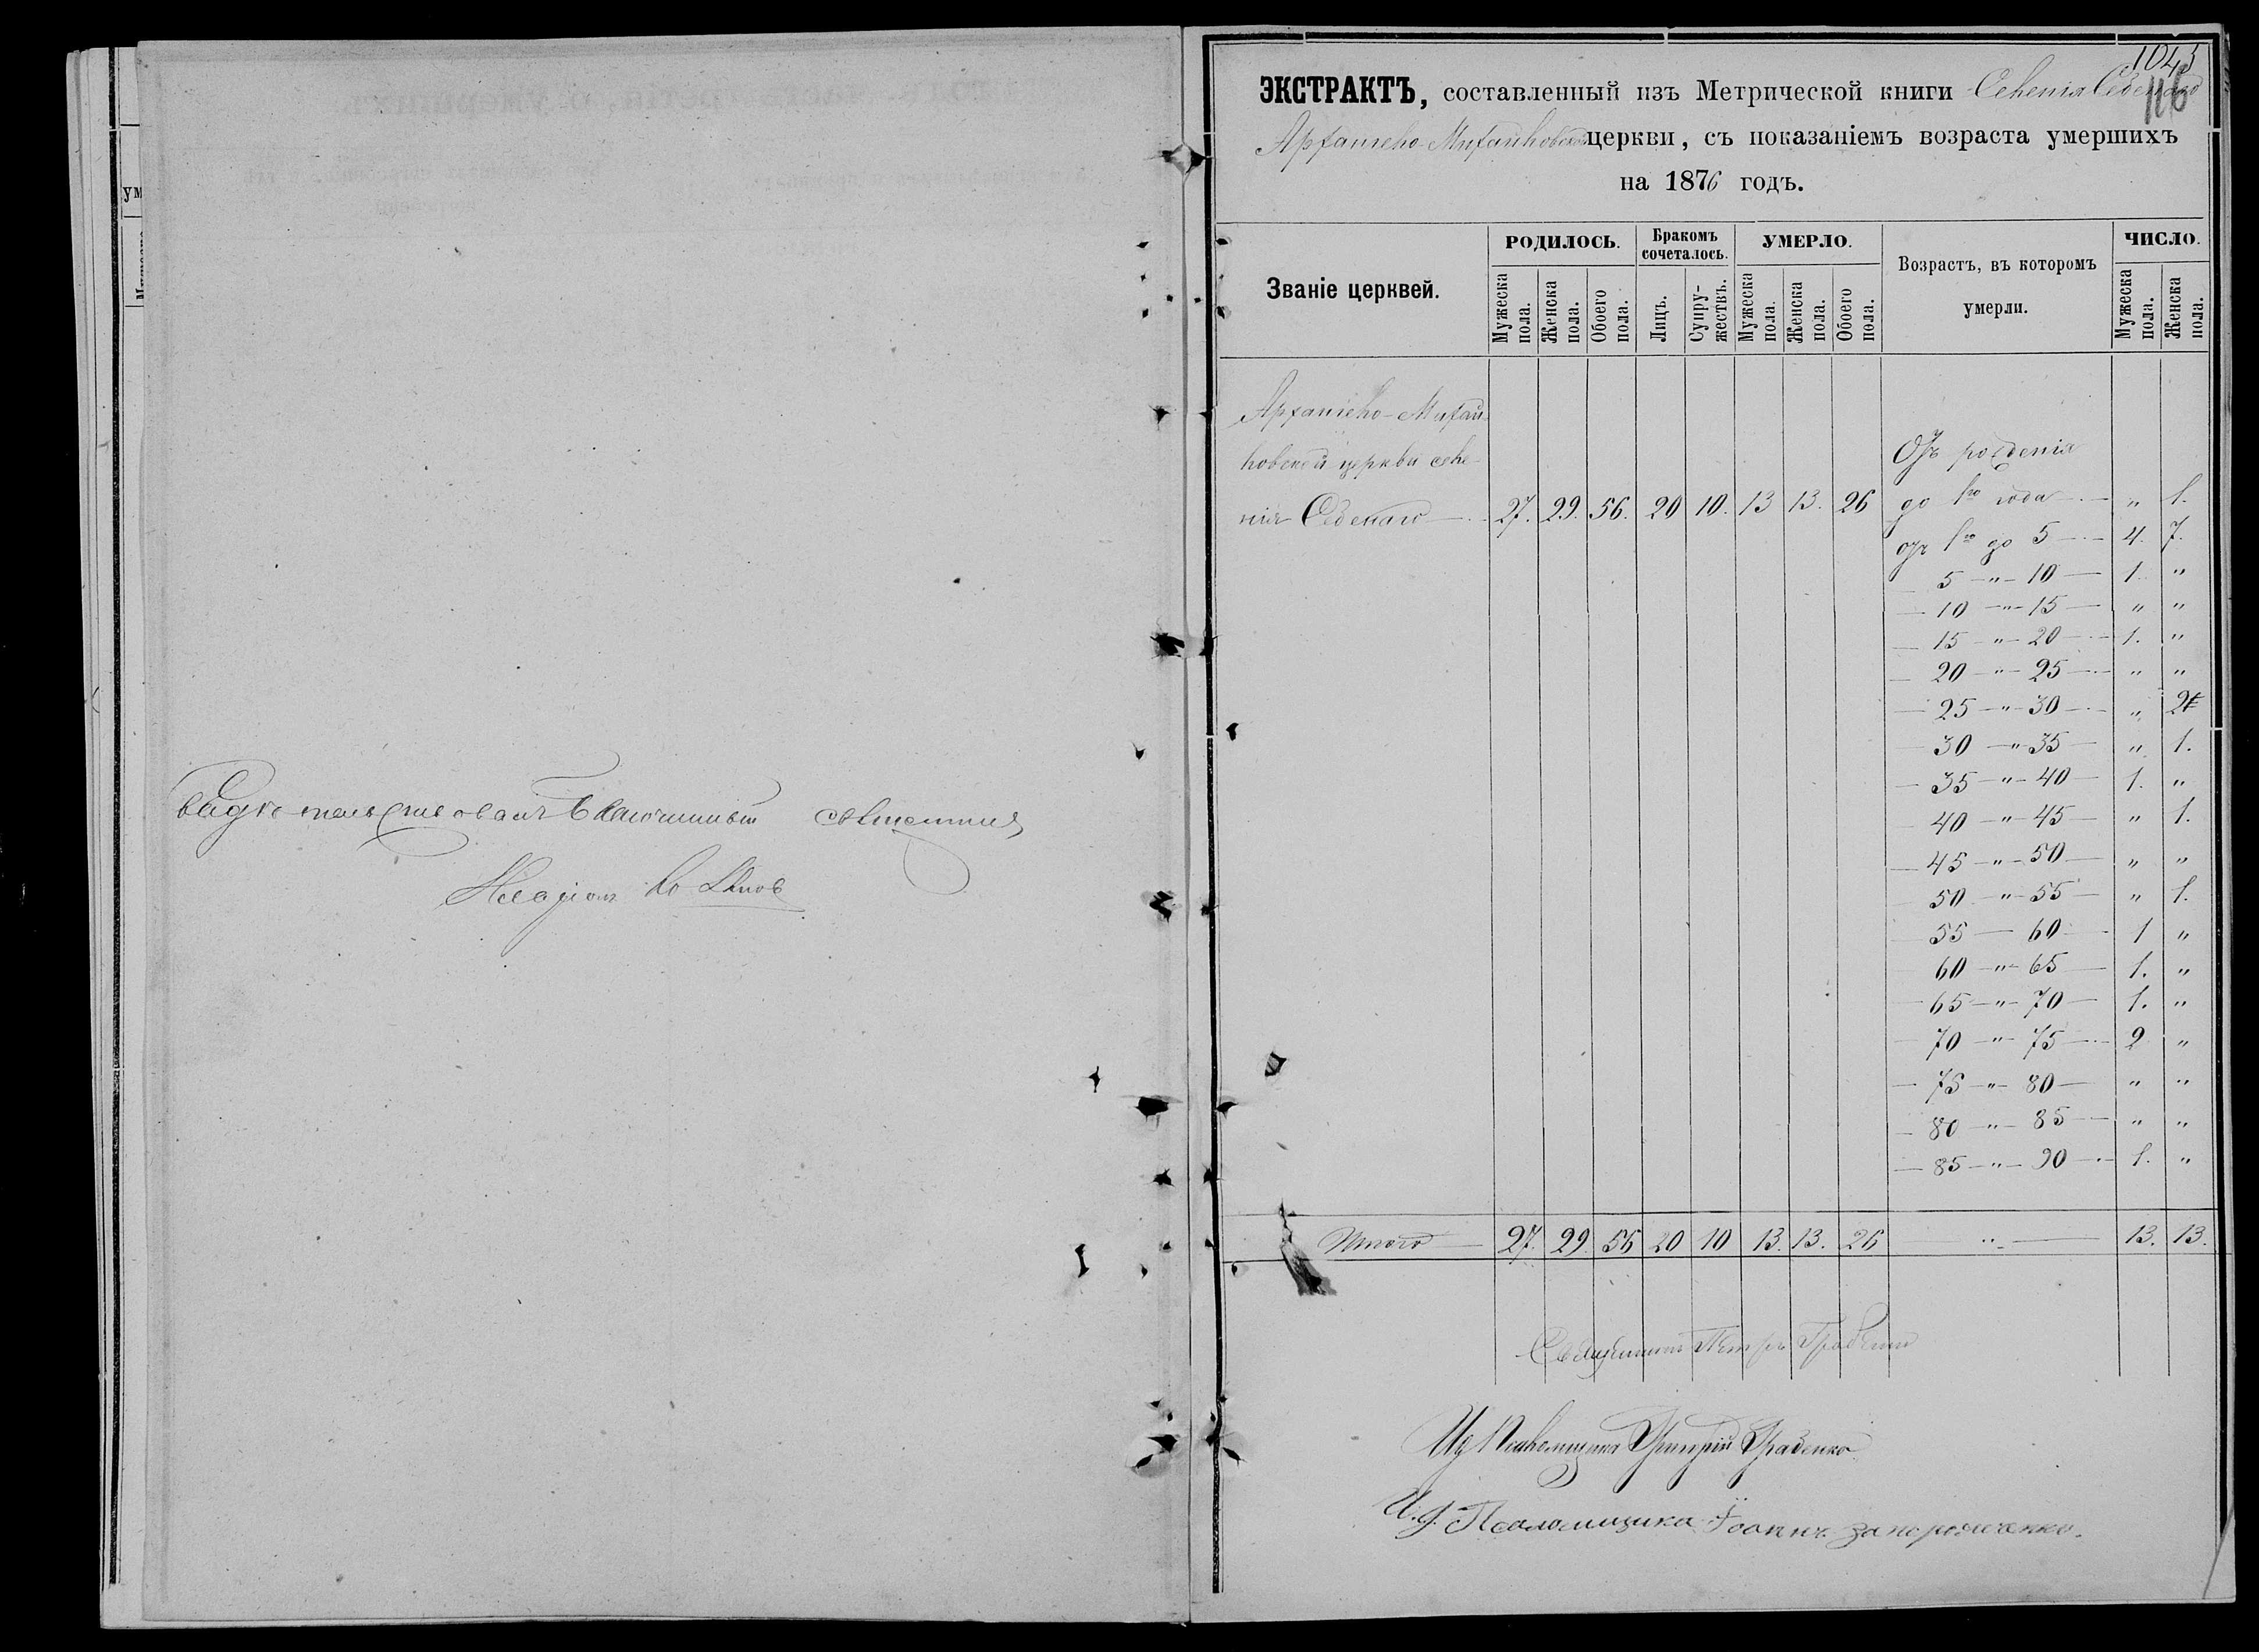 ум
Свидѣтельствовалъ Благочинный священникъ
1043
116
ЭКСТРАКТЪ, составленный изъ Метрической книги Селенія
Архангело-Михайловской церкви, съ показаніемъ возраста умершихъ
на 1876 годъ.
Званіе церквей.
РОДИЛОСЬ.
Мужеска пола.
Женска пола.
Обоего пола.
Бракомъ сочеталось.
Лицъ.
Супружествъ.
УМЕРЛО.
Мужеска пола.
Женска пола.
Обоего пола.
Возрастъ, въ которомъ
умерли.
ЧИСЛО.
Мужеска пола.
Женска пола.
Архангело-Михай-
ловской церкви селе-
нія 27. 29. 56. 20 10. 13 13. 26
Отъ рожденія
до 1го года — „ 1.
отъ 1го до 5 — 4. 7.
5 — „ — 10 — 1. „
— 10 — „ — 15 — „ „
— 15 — „ — 20 — 1. „
— 20 — „ — 25 — „ „
— 25 — „ — 30 — „ 2
— 30 — „ — 35 — „ 1.
— 35 — „ — 40 — 1. „
— 40 — „ — 45 — „ 1.
— 45 — „ — 50 — „ „
— 50 — „ — 55 — „ 1.
— 55 — 60 — 1 „
— 60 — „ — 65 — 1. „
— 65 — „ — 70 — 1. „
— 70 — „ — 75 — 2 „
— 75 — „ — 80 — „ „
— 80 — „ — 85 — „ „
— 85 — „ — 90 — 1. „
Итого — 27. 29 56 20 10 13. 13. 26 „ — 13. 13.
Священникъ Петръ
И д Псаломщика Григорій Граденко
И. д. Псаломщика Іоаннъ